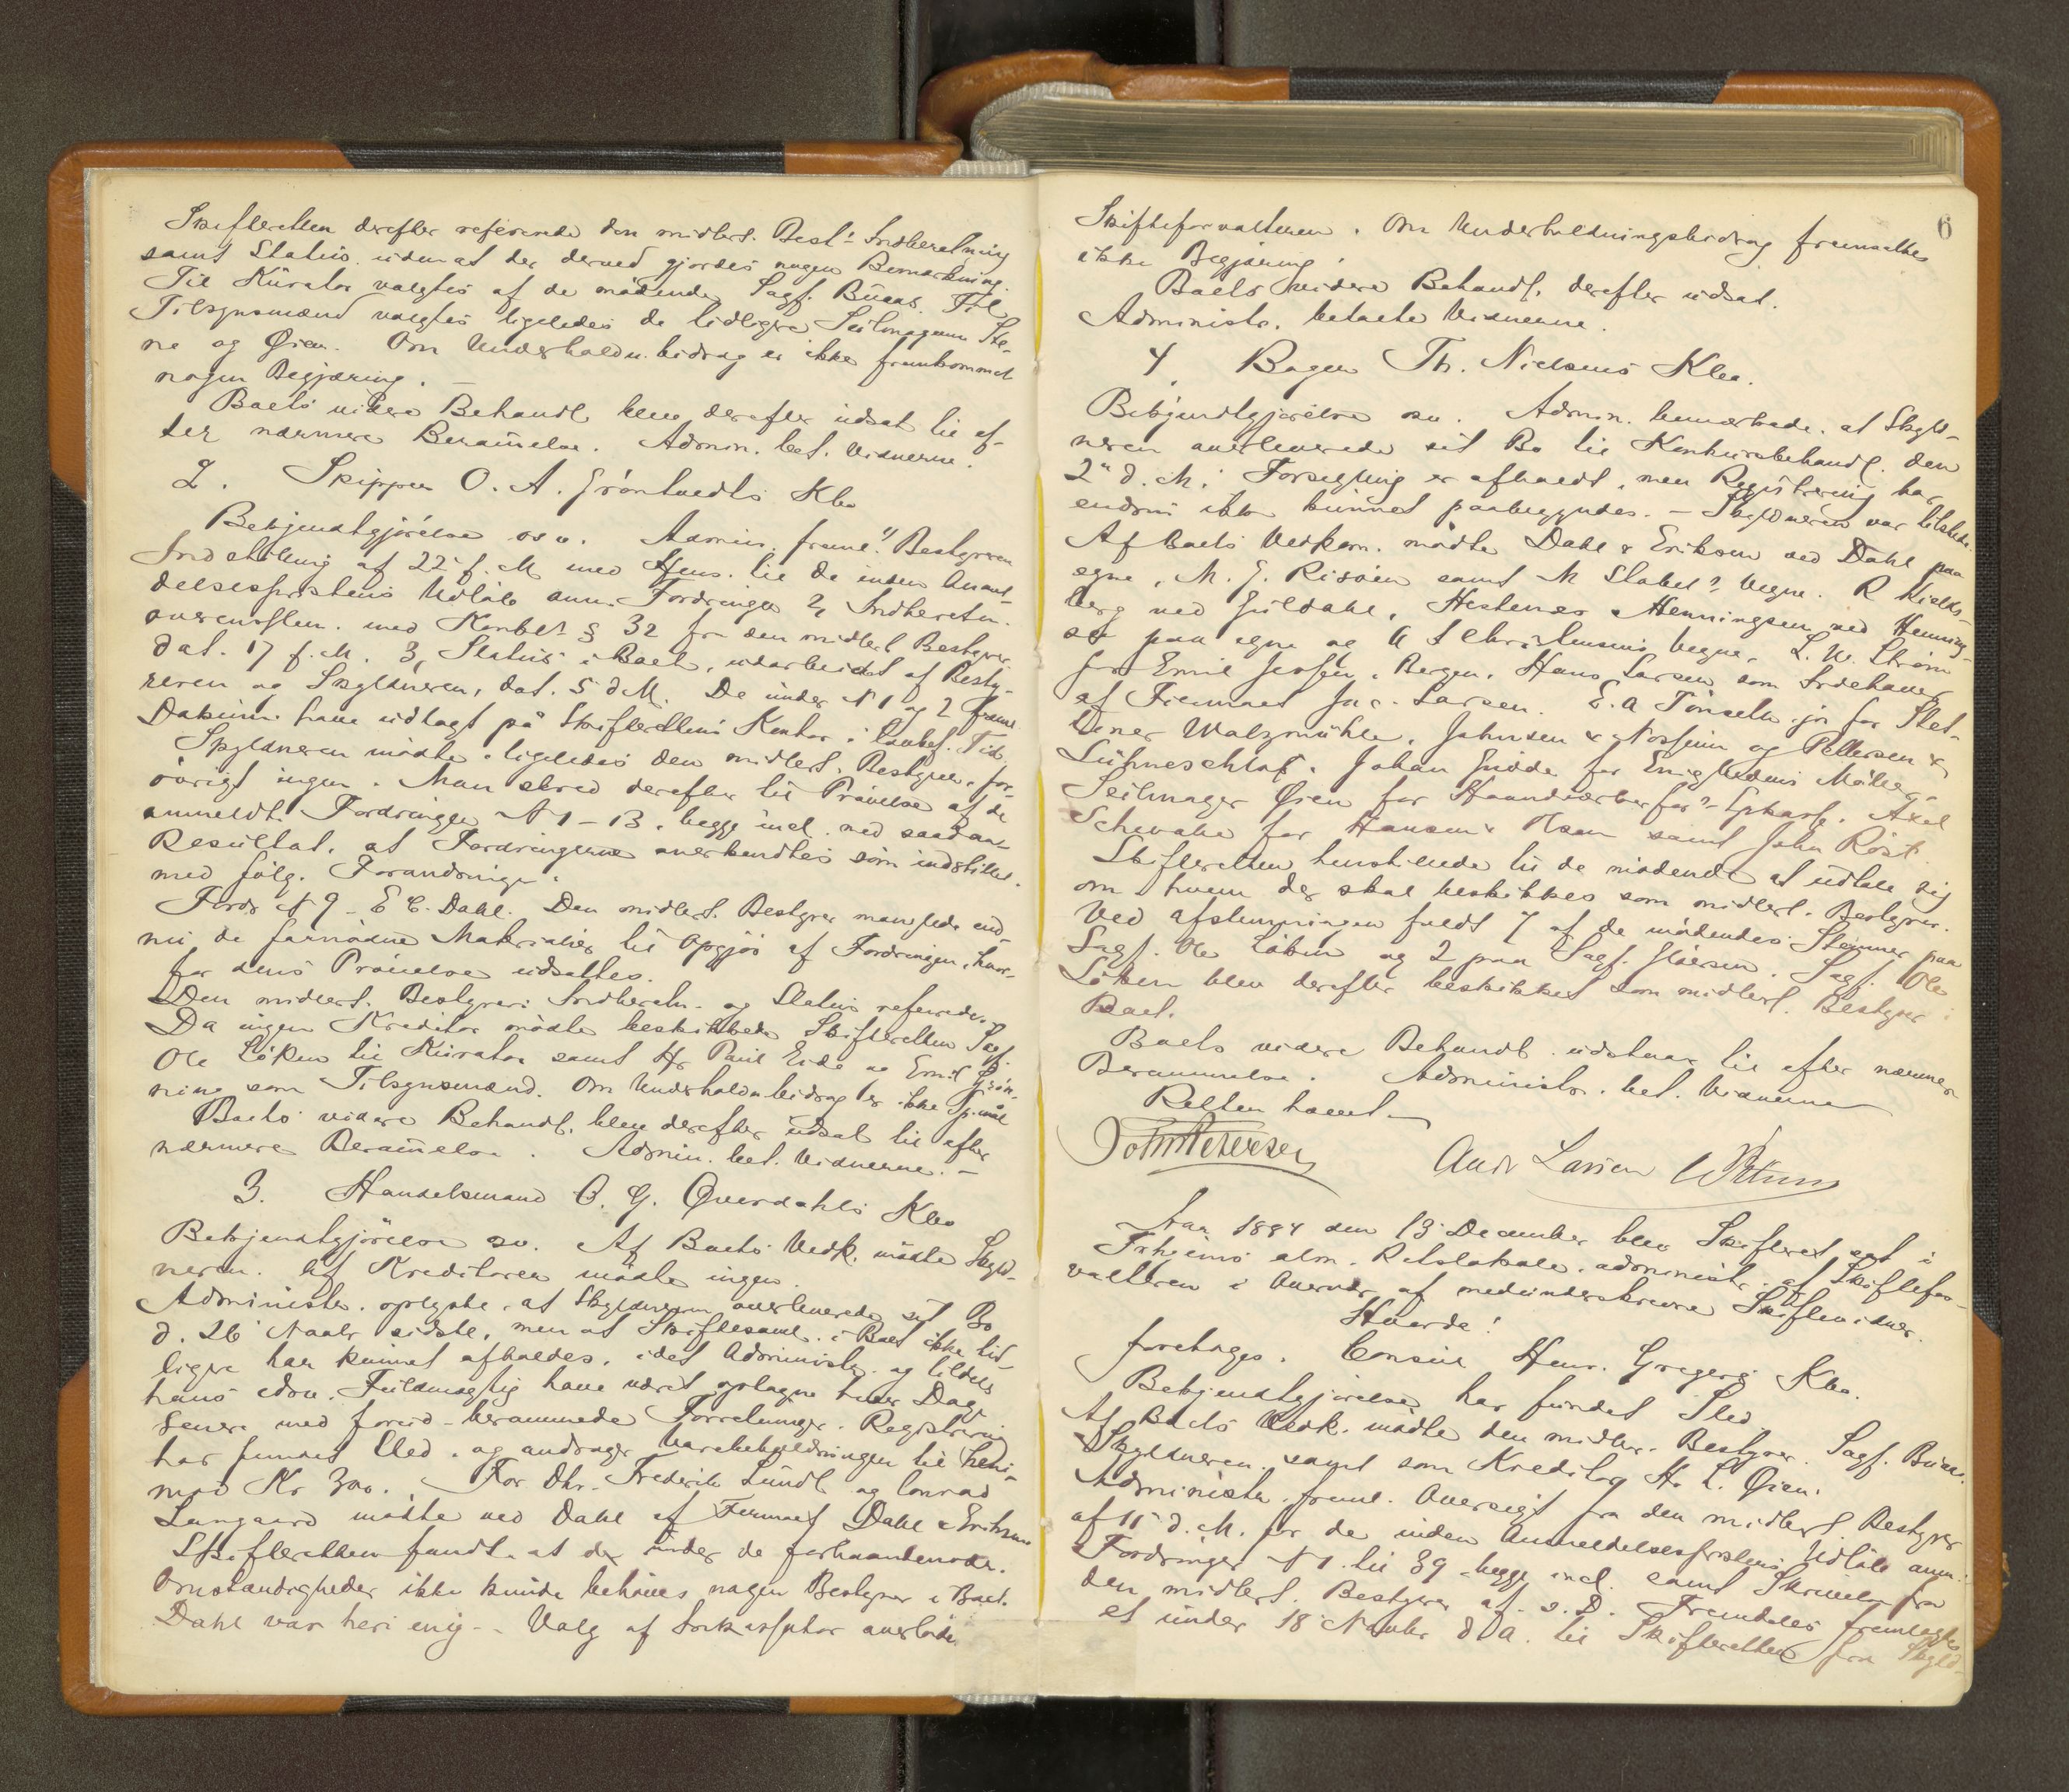 Skifteretten derefter refererede den midlert. Best.s Indberetning
samt Status uden at der derved gjordes nogen Bemærkning.
Til Kurator valgtes af de mødende Sagf. Buaas. Til
Tilsynsmænd valgtes ligeledes de tidligere Seilmagerne Ste-
ne og Øien. Om Underholdn.bidrag er ikke fremkommet
nogen Begjæring. –
Boets videre Behandl. blev derefter udsat til ef-
ter nærmere Berammelse. Admin. bet. Vidnerne.
2. Skipper O. A. Gröntvedts Kbo
Bekjendtgjörelse osv. Admin. freml. 1) Bestyreren
Indstilling af 22 f. M. med Hens. til de inden Anmel-
delsesfristens Udlöb anm. Fordringer 2, Indberetn.
overensstem. med Konkl. § 32 fra den midlert Bestyrer
dat. 17 f. M. 3, Status i Boet, udarbeidet af Besty-
reren og Skyldneren, dat. 5 d M. De under N 1 og 2 freml
Dokum. have udlagt på Skifterettens Kontor i lovbef. Tid.
Skyldneren mödte, ligeledes den midlert. Bestyrer, for-
övrigt ingen. Man skred derefter til Prövelse af de
anmeldte Fordringer N 1 – 13, begge incl. med saadant
Resultat, at Fordringerne anerkendtes som indstillet
med følg. Forandringer:
Fordr N 9 – E C. Dahl. Den midlert. Bestyrer manglede end-
nu de fornødne Materialier til Opgjör af Fordringen, hvor-
for dens Prövelse udsattes.
Den midlert. Bestyrers Indberetn. og Status refereredes.
Da ingen Kreditor mödte beskikkede Skifteretten Sagf.
Ole Löken til Kurator samt Hr Paul Eide og Emil Grön-
ning som Tilsynsmænd. Om Underholdnbidrag er ikke Spmål
Boets videre Behandl. blev derefter udsat til efter
nærmere Berammelse. Admin. bet. Vidnerne. –
3. Handelsmand O. G. Qverdahls Kbo
Bekjendtgjörelse osv. Af Boets Vedk. mödte Skyld-
neren. Af Kreditorer mödte ingen.
Administr. oplyste, at Skyldneren overleverede sit Bo
d. 26 Novbr sidste, men at Skiftesaml. i Boet ikke tid-
ligere har kunnet afholdes, idet Administr. og tildels
hans edsv. Fuldmægtig have været optagne hver Dag
senere med forud berammede Forretninger. Registrering
har fundet Sted, og andrager Varebeholdningen til hen-
mod Kr 300. For Dhr. Frederik Lundt og Conrad
Langaard mödte ved Dahl af Firmaet Dahl & Eriksen
Skifteretten fandt at der under de forhaandenvær.
Omstændigheder ikke kunde behöves nogen Bestyrer i Boet.
Dahl var heri enig. – Valg af overlodes
6
Skifteforvalteren. Om Underholdningsbidrag fremsattes
ikke Begjæring.
Boets videre Behandl. derefter udsat.
Administr. betalte Vidnerne.
4. Bager Th. Nielsens Kbo.
Bekjendtgjörelse osv. Admin. bemærkede, at Skyld-
neren overleverede sit Bo til Konkursbehandl. den
2 d. M. Forsegling er afholdt, men Registrering har
endnu ikke kunnet paabegyndes. – Skyldneren var tilstede.
Af Boets Vedkom. mödte Dahl & Eriksen ved Dahl paa
egne, M. G. Risöien samt M Stabels Vegne. R Kields-
berg ved Guldahl, Hestenæs & Henningsen ved Henning-
sen paa egne og A S Christensens Vegne, L. W. Ström
for Emil Jessen, Bergen, Hans Larsen som Indehaver
af Firmaet Jac. Larsen. E. A Tönseth jr for Stet-
tiner Walzmühle, Johnsen & og Pettersen &
Lühneschloß. Johan Gjödde for Enighedens Mölle-
Seilmager Øien for Haandværkerfor.s Spkasse. Axel
Schwabe for Hansen & Olsen samt John Röst.
Skifteretten henstillede til de mödende at udtale sig
om hvem der skal beskikkes som midlert. Bestyrer.
Ved Afstemningen faldt 7 af de mödendes Stemmer paa
Sagf. Ole Löken og 2 paa Sagf. Gløersen. Sagf. Ole
Löken blev derefter beskikket som midlert. Bestyrer i
Boet.
Boets videre Behandl. udstaar til efter nærmere
Berammelse. Administr. bet. Vidnerne
Retten hævet.
John Petersen Andr Larsen
Aar 1884 den 13 December blev Skifteret sat i
Trhjems alm. Retslokale, administr. af Skiftefor-
valteren i Overvær af medunderskrevne Skiftevidner.
Hvorda!
foretoges. Consul Henr. Gregers. Kbo.
Bekjendtgjörelse har fundet Sted
Af Boets Vedk. mödte den midlert. Bestyrer Sagf. Buaas.
Skyldneren samt som Kreditor Hr L. Øien.
Administr. freml. Oversigt fra den midlert. Bestyrer
af 11 d. M. for de inden Anmeldelsesfristens Udlöb anm.
Fordringer N 1 til 39 begge incl. samt Skrivelse fra
den midlert. Bestyrer af s. D. Fremdeles fremlagdes
et under 18 Novbr d A. til Skifteretten fra Skyld-